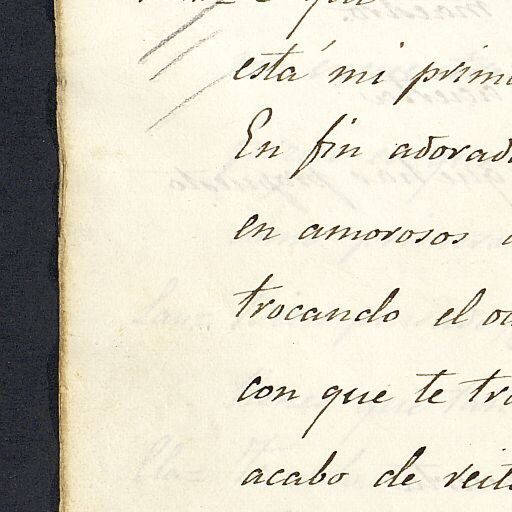 está mi prim
En fin adorad
en amorosos
trocando el
con que te tra
acabo de reite